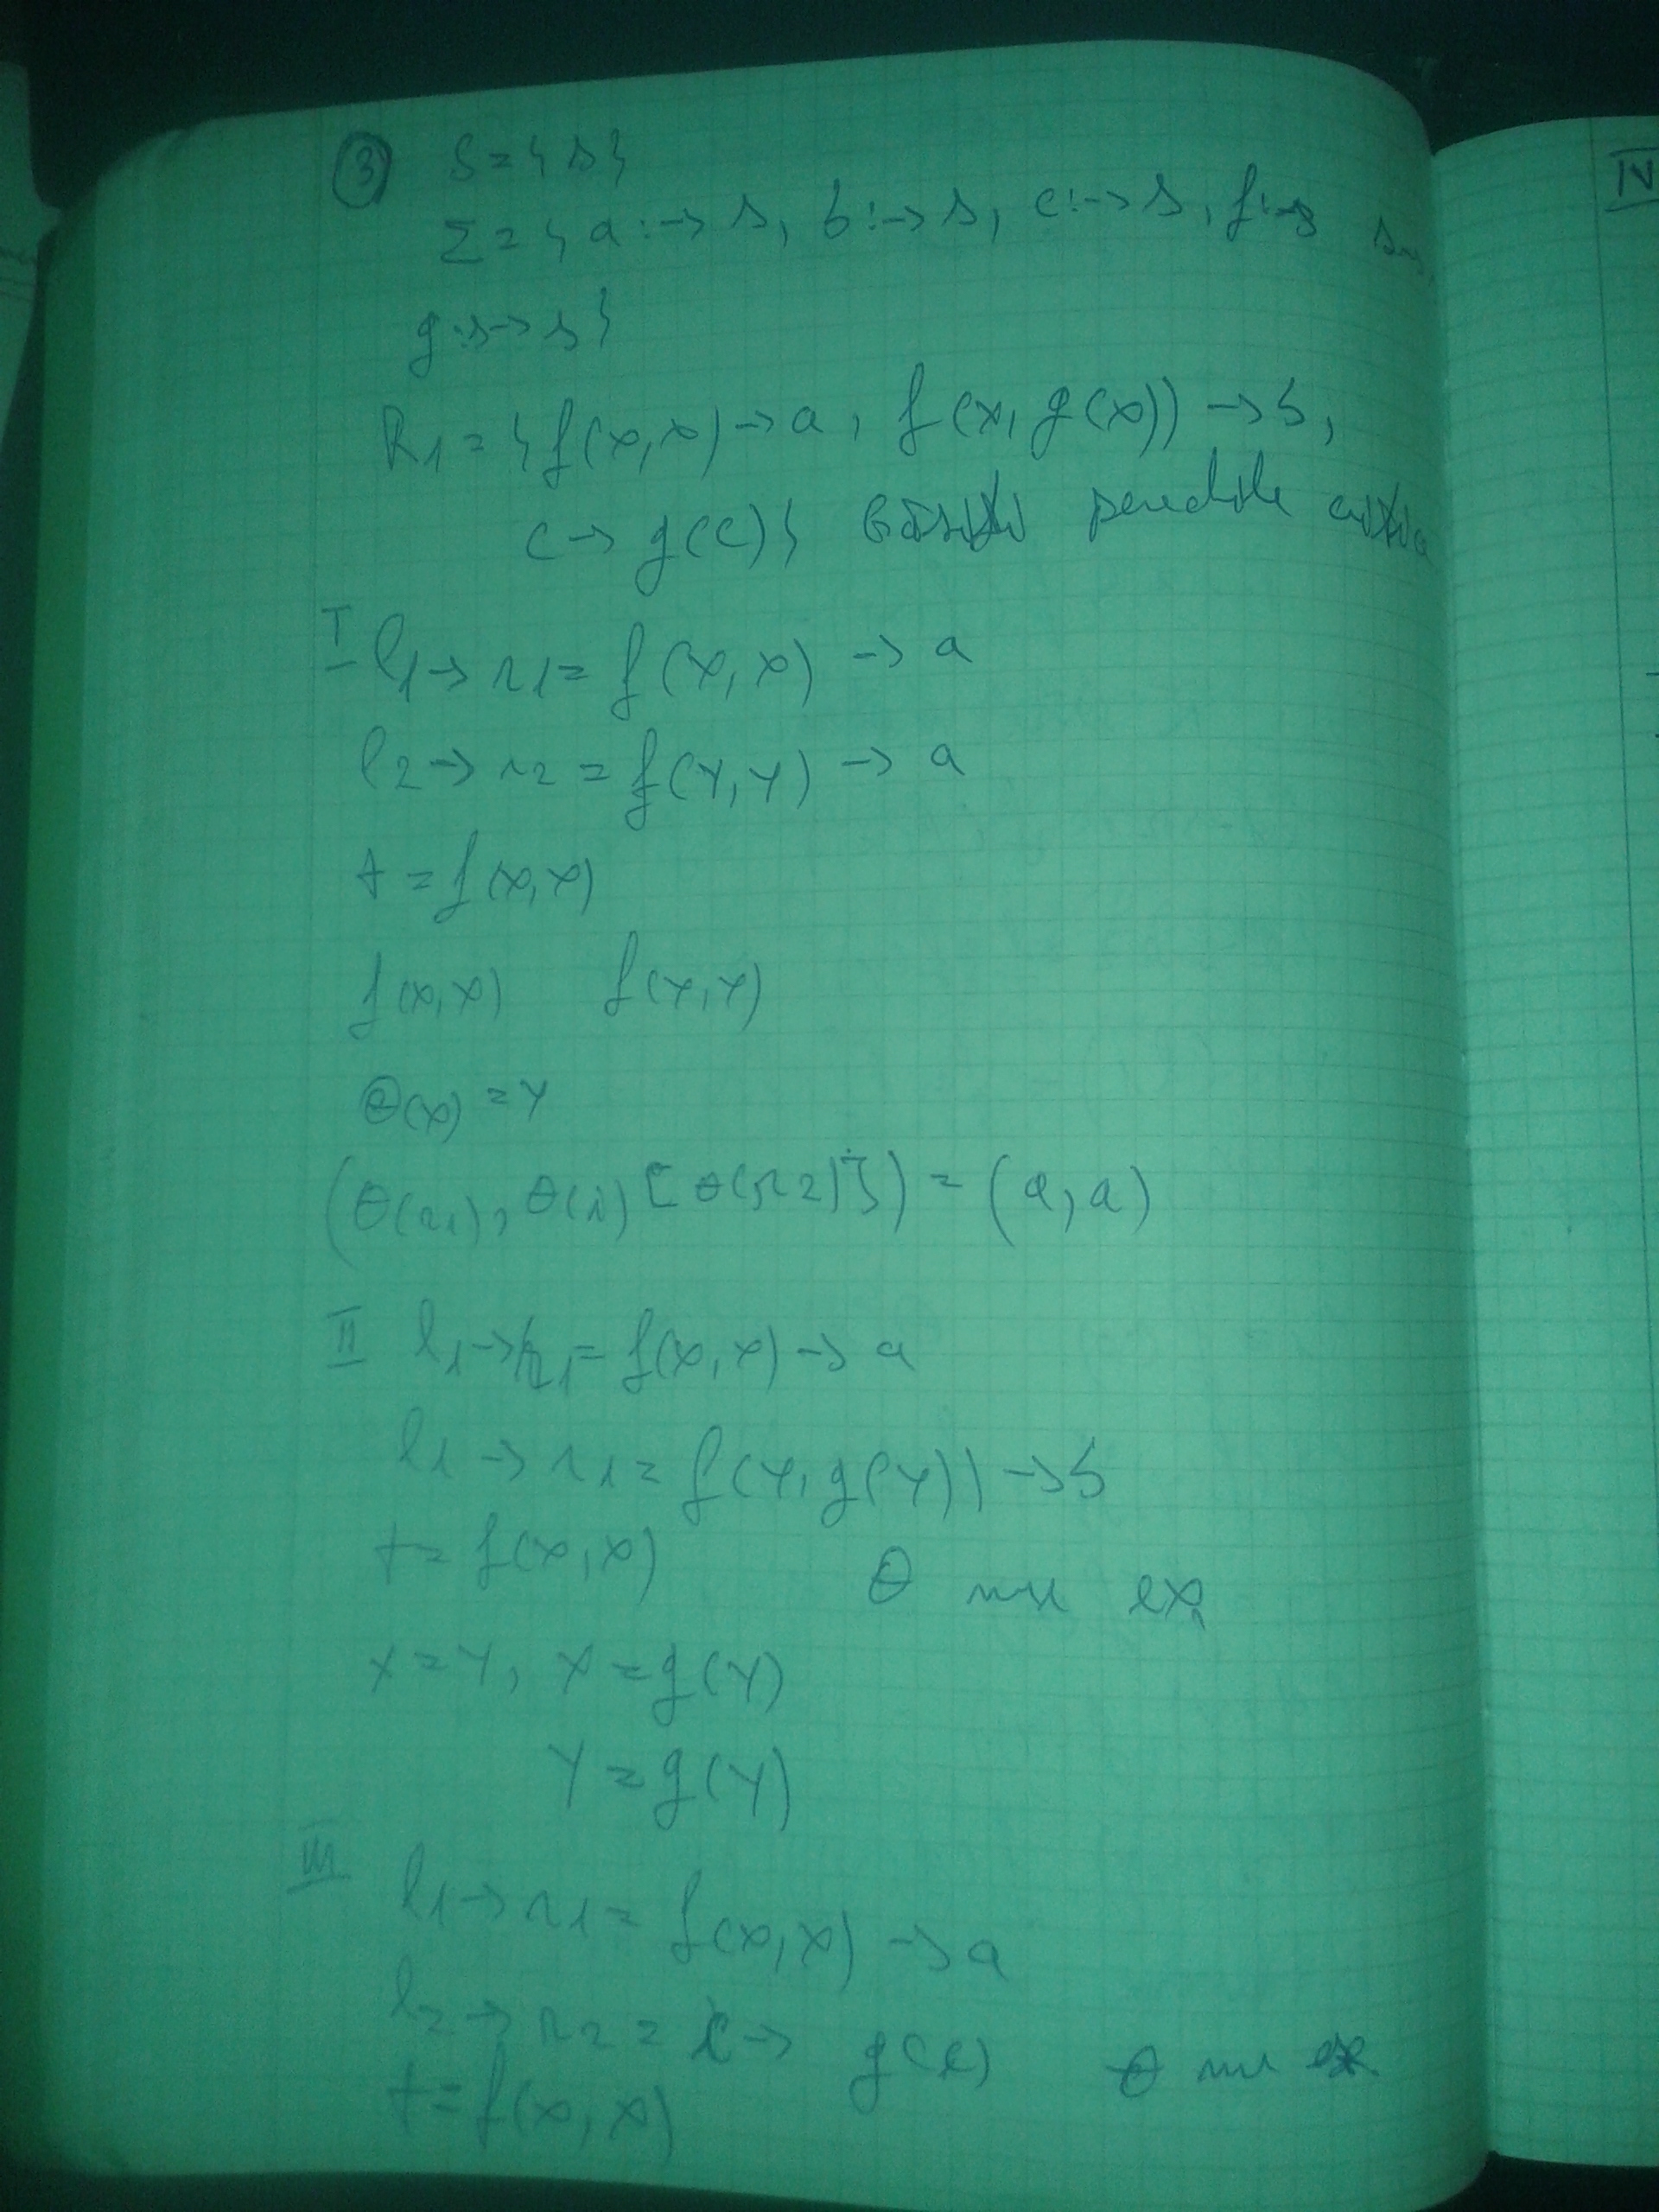 ③ S = { s }
Σ = { a : → s, b : → s, c : → s, f : → s
g : s → s }
R1 = { f(x,x) → a, f(x, g(x)) → b,
c → g(c) } perechile
I l1 → r1 = f(x,x) → a
l2 → r2 = f(y,y) → a
t = f(x,x)
f(x,x) f(y,y)
θ(x) = y
(θ(r1), θ(r) [θ(r2)]) = (a, a)
II l1 → r1 = f(x,x) → a
l1 → r1 = f(y, g(y)) → b
t = f(x,x) θ nu ex.
x = y, x = g(y)
y = g(y)
III l1 → r1 = f(x,x) → a
l2 → r2 = c → g(c) θ nu ex
t = f(x,x)
IV